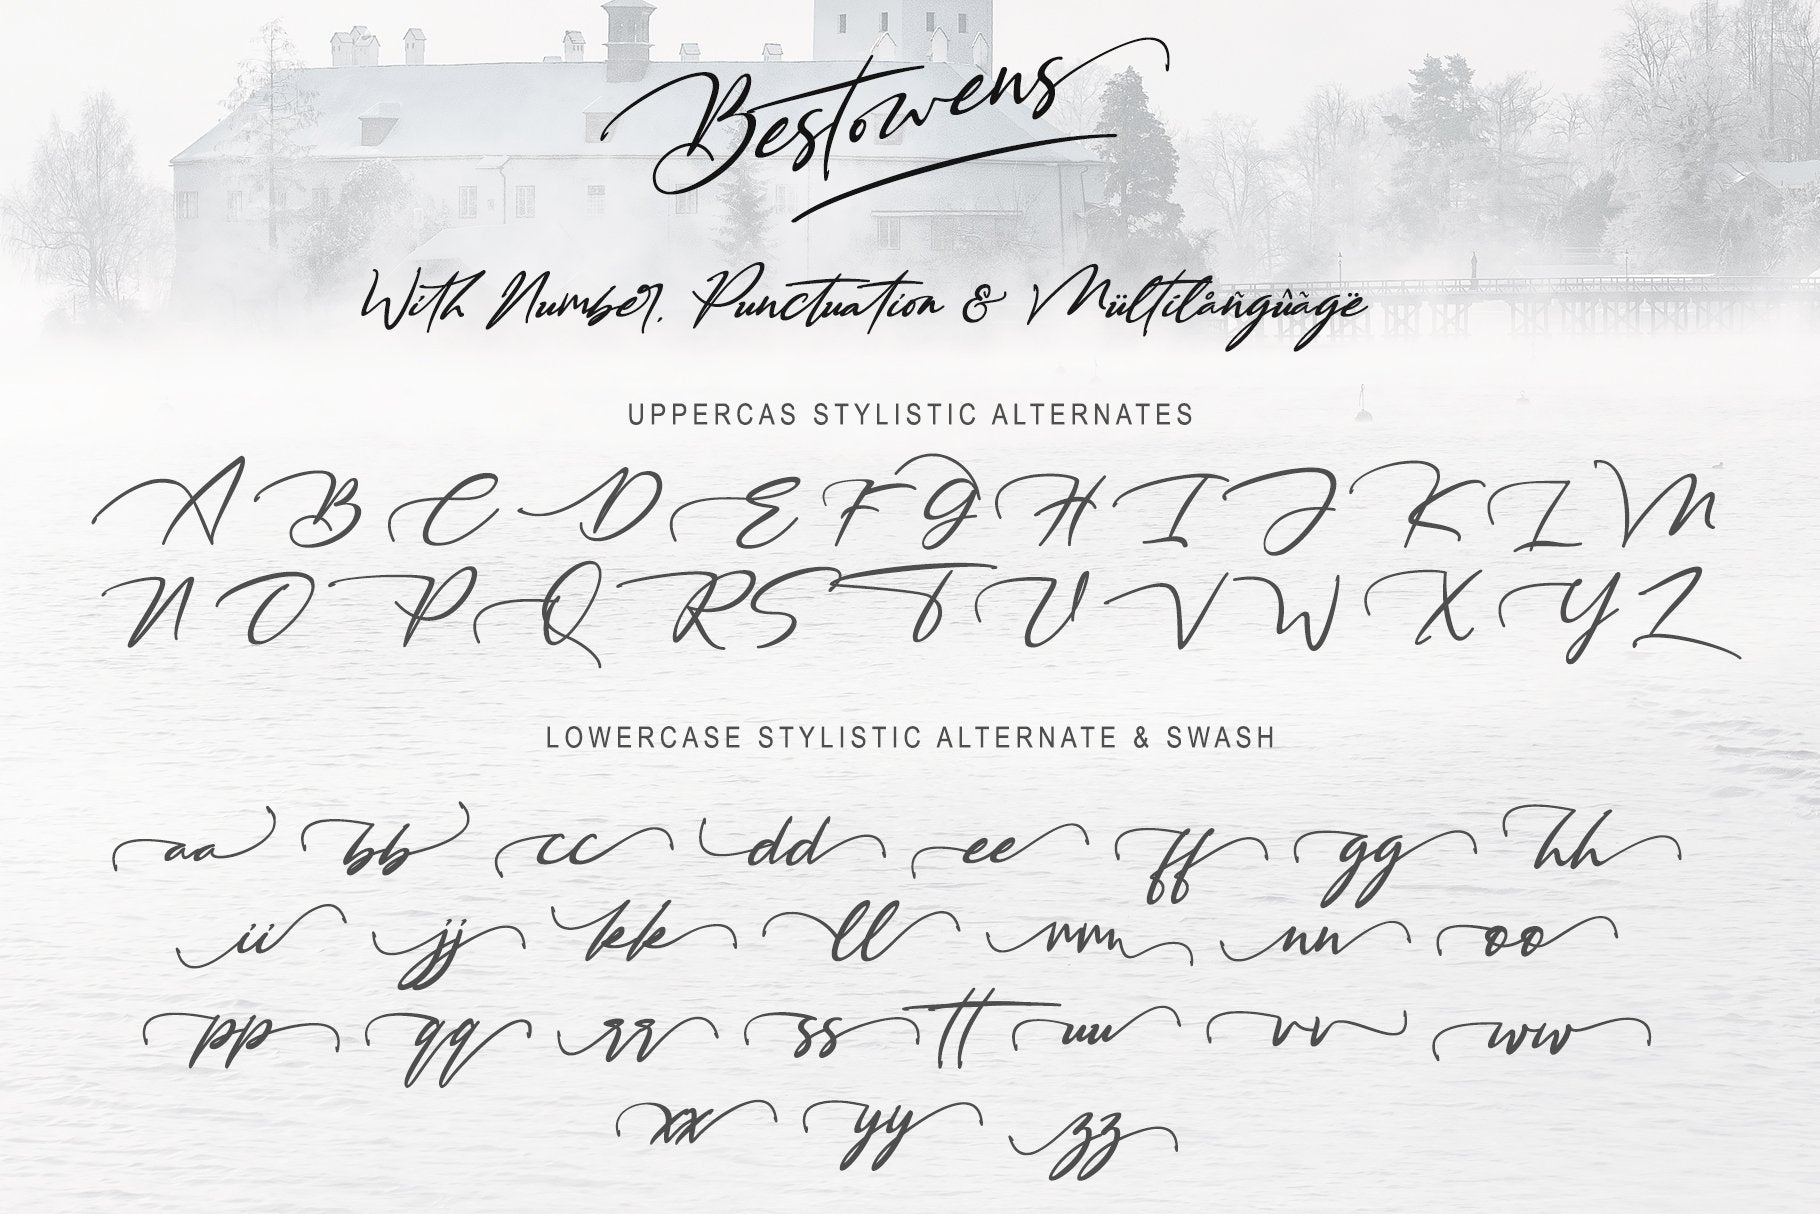 Bestowens
With Number, Punctuation & Mültilåñgûãgë
UPPERCAS STYLISTIC ALTERNATES
A B C D E F G H I J K L M
N O P Q R S T U V W X Y Z
LOWERCASE STYLISTIC ALTERNATE & SWASH
aa bb cc dd ee ff gg hh
ii jj kk ll mm nn oo
pp qq rr ss tt uu vv ww
xx yy zz